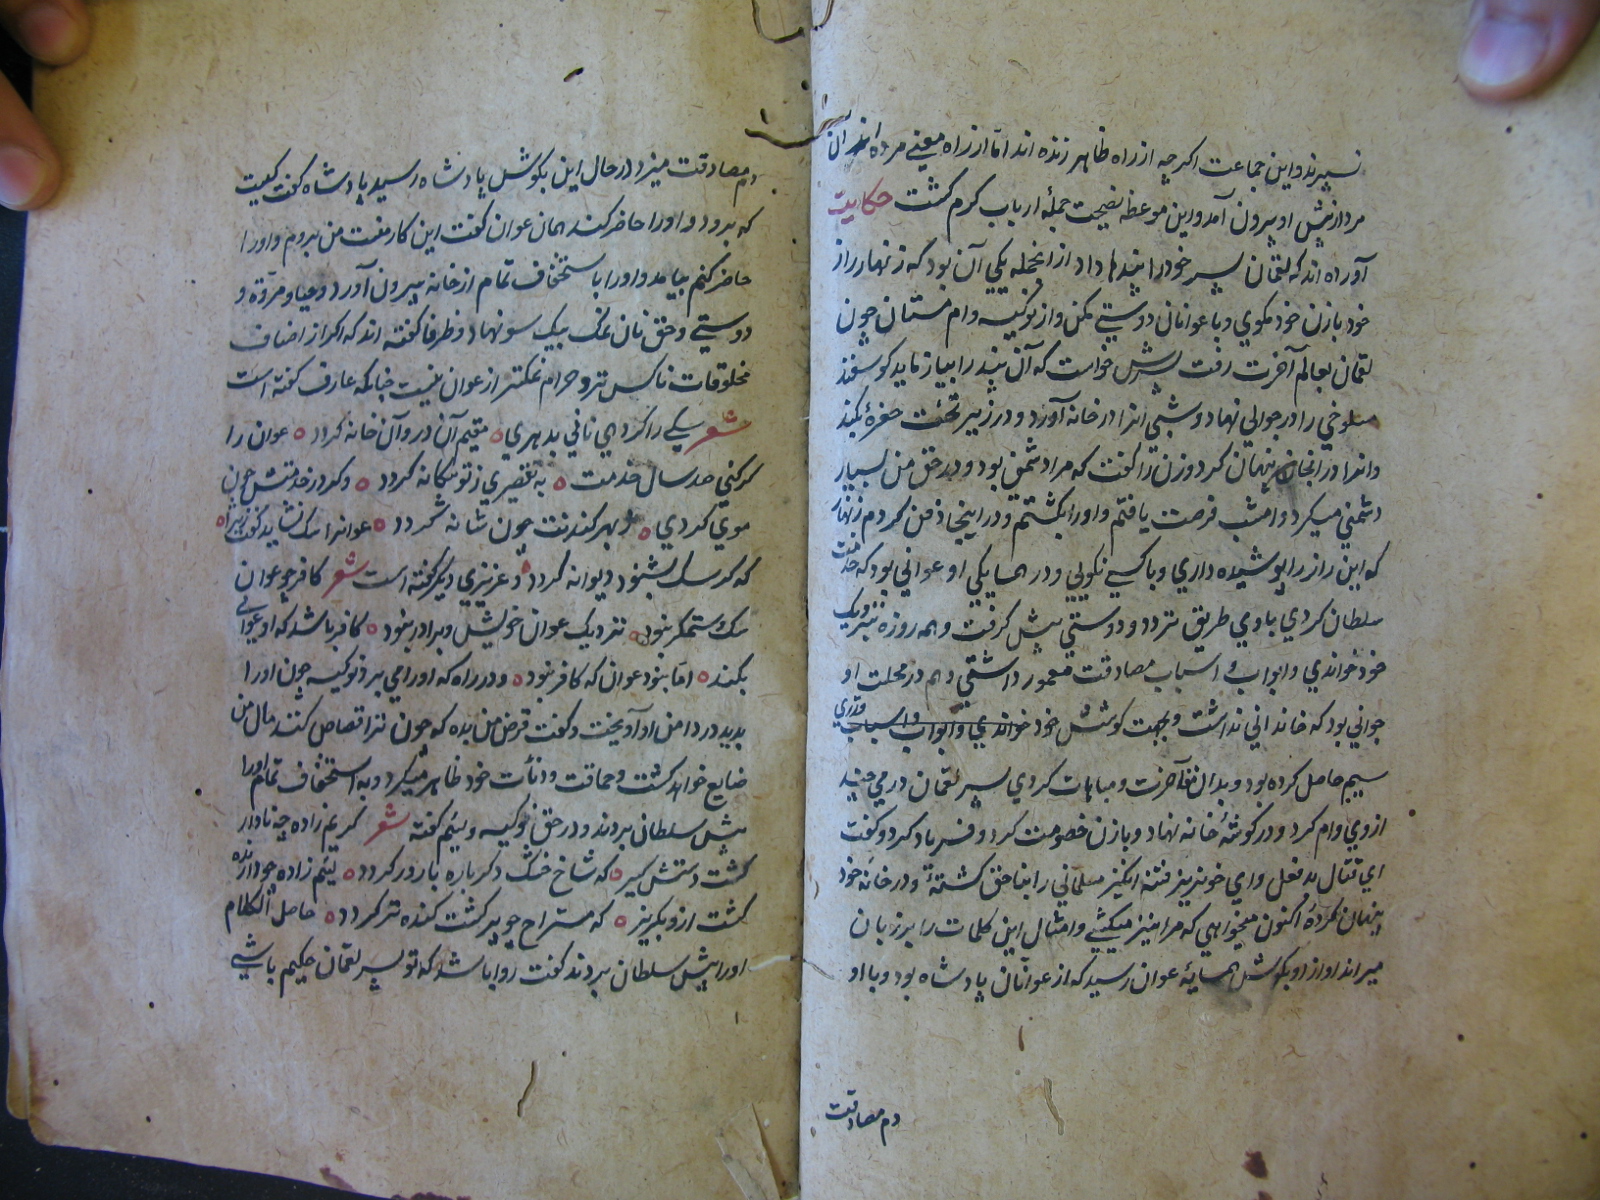 نسپرند و این جماعت اکرچه از راه ظاهر زنده اند اما از راه معنے مرده اند آن
مرد از پیش او بیرون آمد و این موعظه نصیحت جملهٔ ارباب کرم کشت حکایت
آورده اند که لقمان پسر خود را پندها داد از انجمله یکی آن بود که زنهار راز
خود بازن خود مکوی و با عوانان دوستی مکن و از نوکیسه وام مستان چون
لقمان بعالم آخرت رفت پسرش خواست که آن پند را بیازماید کوسفند
مسلوخی را در جوالی نهاد و شبی انرا در خانه آورد و در زیر تخت حفرهٔ بکند
وانرا در انجا پنهان کرد و زن را کفت که مرا دشمنی بود و در حق من بسیار
دشمنی میکرد و امشب فرصت یافتم و اورا بکشتم و در اینجا دفن کردم زنهار
که این راز را پوشیده داری و باکسی نکویی و در همسایکی او عوانی بود که خدمت
سلطان کردی با وی طریق تردد و دوستی پیش کرفت و همه روزه بنزدیک
خود خواندی و ابواب و اسباب مصادقت معمور داشتی و هم در محلت او
جوانی بود که خاندانی نداشت و بجهت کوشش خود خواندی و ابواب و اسباب قدری
سیم حاصل کرده بود و بدان تفاخرت و مباهات کردی پسر لقمان درمی چند
از وی وام کرد و در کوشهٔ خانه نهاد و بازن خصومت کرد و فریاد کرد و کفت
ای قتال بد فعل و ای خونریز فتنه انکیز مسلمانی را بناحق کشتهٔ و در خانهٔ خود
پنهان کردهٔ اکنون میخواهی که مرا نیز میکشی و امثال این کلمات را بر زبان
میراند آواز او بکوش همسایهٔ عوان رسید که از عوانان پادشاه بود و با او
دم مصادقت
دم مصادقت میزد در حال این بکوش پادشاه رسید پادشاه کفت کیست
که برود و اورا حاضر کند همان عوان کفت این کار منست من بروم و اورا
حاضر کنم بیامد و اورا باستخفاف تمام از خانه بیرون آورد و حیا و مروّة و
دوستی و حق نان نمک بیک سو نهاد و ظرفا کفته اند که اکر از اصناف
مخلوقات ناکس تر و حرام نمکتر از عوان نیست چنانکه عارف کفته است
شعر سکی را کر دمی نانی بدهری ه مقیم آن در و آن خانه کردد ه عوان را
کر کنی صد سال خدمت ه به تقصیری ز تو بیکانه کردد ه وکر در خدمتش چون
موی کردی ه بهر کندنت چون شانه کردد ه عوانرا سک نشاید کفت زیرا ه
که کر سک بشنود دیوانه کردد ه و عزیزی دیکر کفته است شعر کافر چو عوان
سک ستمکر نبود ه نزدیک عوان خویش و برادر نبود ه کافر باشد که او عوانی
بکند ه اما نبود عوان که کافر نبود ه و در راه که اورا می برد نوکیسه چون اورا
بدید در دامن او آویخت و کفت قرض من بده که چون ترا قصاص کنند مال من
ضایع خواهد کشت و حماقت و دنأت خود ظاهر میکرد و به استخفاف تمام اورا
پیش سلطان بردند و در حق نوکیسه و لئیم کفته شعر کریم زاده چه نادار
کشت دستش کیر ه که شاخ خشک دکر باره بارور کردد ه لئیم زاده چو دارنده
کشت ازو بکریز ه که مستراح چو پر کشت کنده تر کردد ه حاصل الکلام
اورا پیش سلطان بردند کفت روا باشد که تو پسر لقمان حکیم باشی